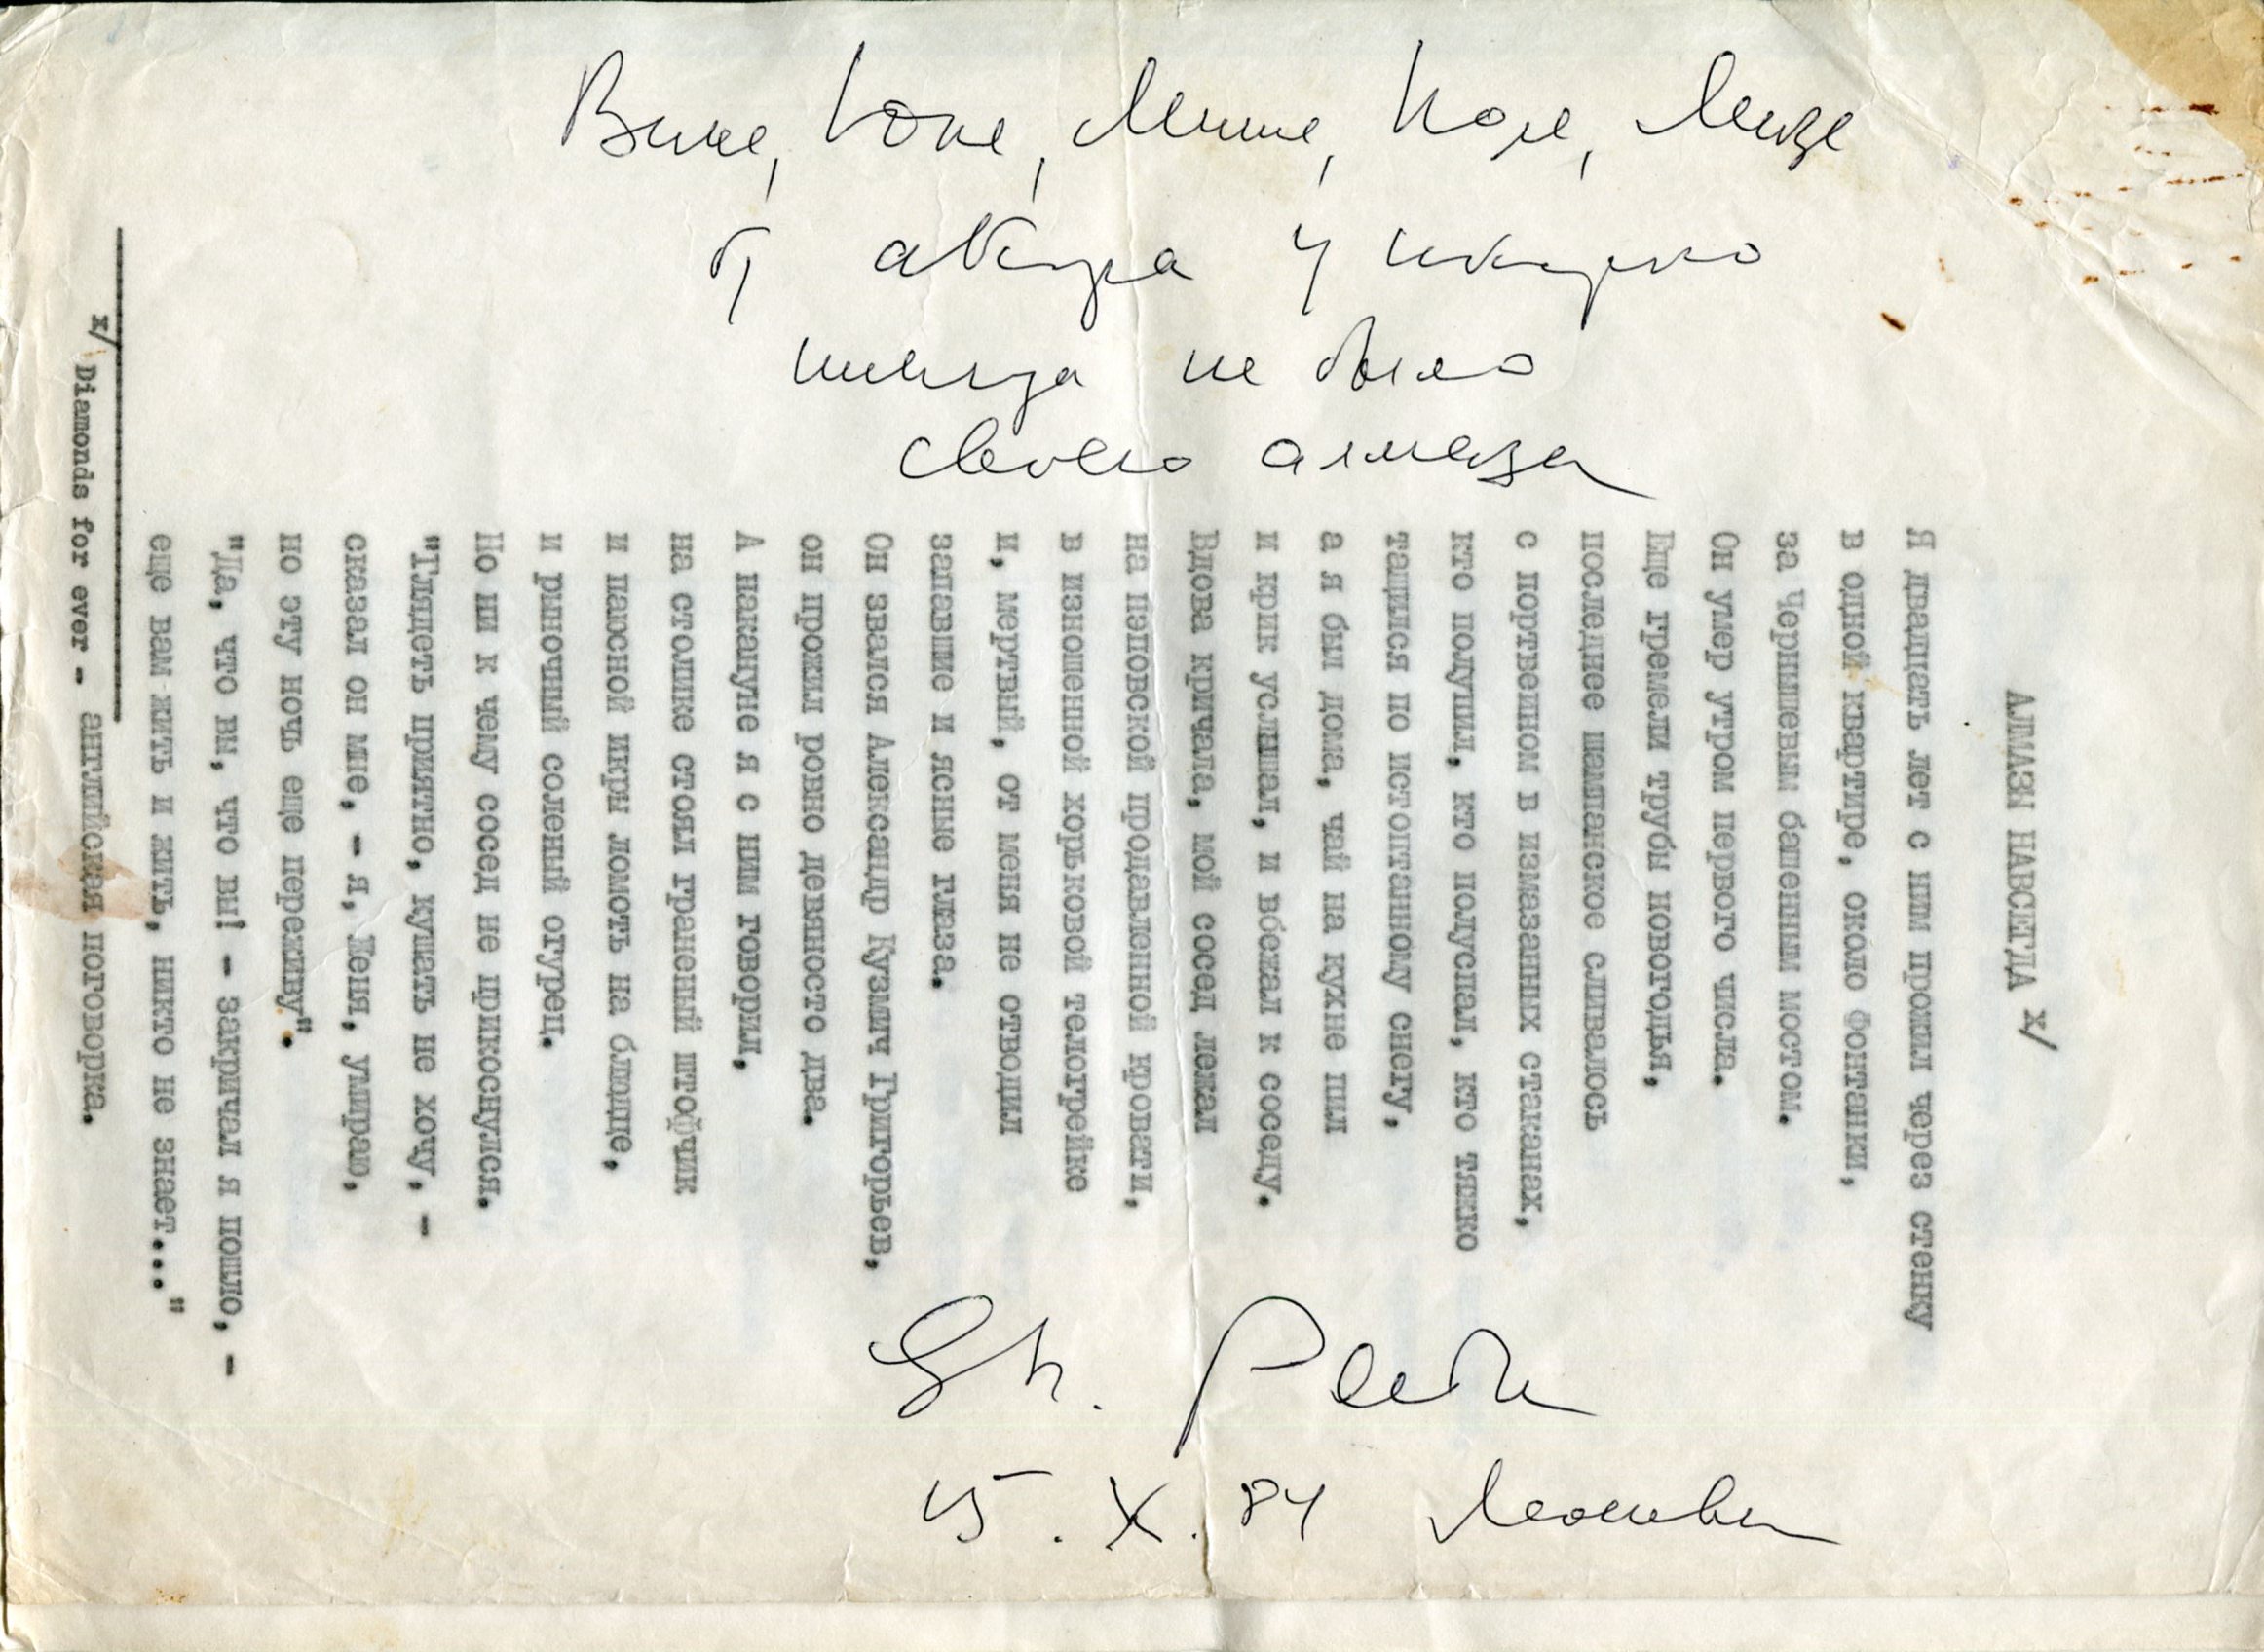 Мише, Коле, Лизе
от автора у которого
никогда не было
своего алмаза
АЛМАЗЫ НАВСЕГДА х/
Я двадцать лет с ним прожил через стенку
в одной квартире, около Фонтанки,
за Чернышевым башенным мостом.
Он умер утром первого числа.
Еще гремели трубы новогодья,
последнее шампанское сливалось
с портвейном в измазанных стаканах,
кто подушил, кто полуспал, кто тяжко
тащился по истоптанному снегу,
а я был дома, чай на кухне пил
и крик услышал, и вбежал к соседу.
Вдова кричала, мой сосед лежал
на нэповской продавленной кровати,
в изношенной хорьковой телогрейке
и, мертвый, от меня не отводил
запавшие и ясные глаза.
Он звался Александр Кузмич Григорьев,
он прожил ровно девяносто два.
А накануне я с ним говорил,
на столике стоял граненый штофчик
и паюсной икры ломоть на блюдце,
и рыночный соленый огурец.
Но ни к чему сосед не прикоснулся.
"Глядеть приятно, кушать не хочу, -
сказал он мне, - я, Женя, умираю,
но эту ночь еще переживу".
"Да, что вы, что вы! - закричал я пошло, -
еще вам жить и жить, никто не знает..."
х/ Diamonds for ever - английская поговорка.
Евг. Рейн
15. X. 84 Москва